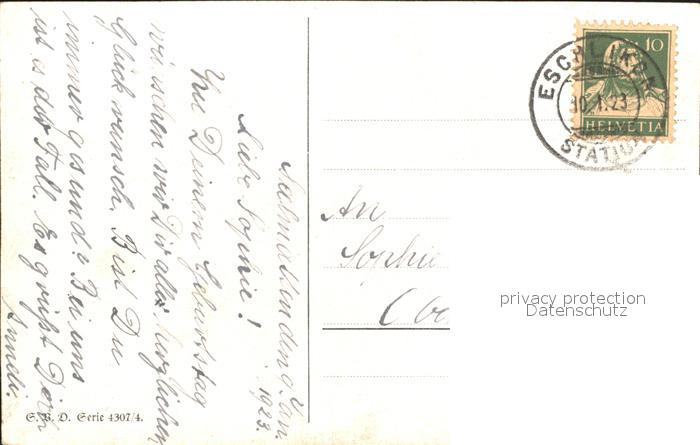 den 9. Jan.
1923.
Liebe Sophie!
Zu Deinem Geburtstag
wünschen wir Dir alle herzlichen
Glückwunsch. Bist Du
immer gesund? Bei uns
ist es der Fall. Es grüßt Dich
Anneli.
S. V. D. Serie 4307/4.
An
Sophie
10
HELVETIA
ESCHLIKON
10.1.23
STATION
privacy protection
Datenschutz